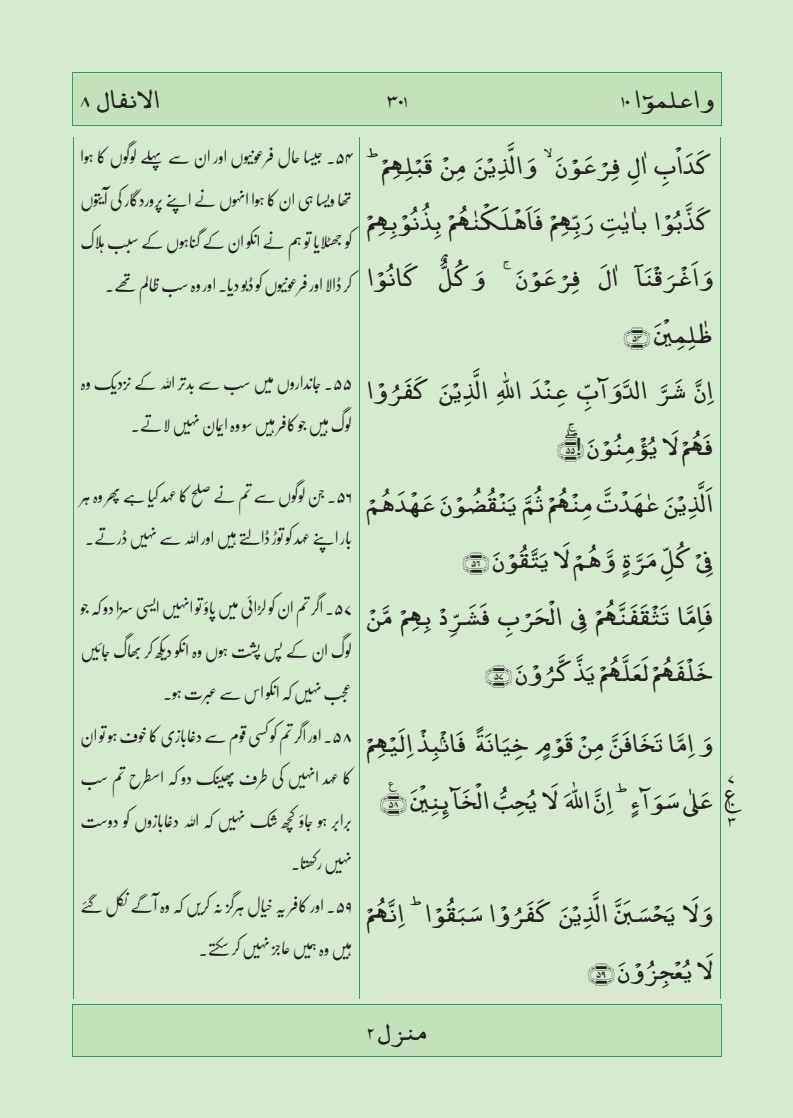 واعلموٓا ١٠
٣٠١
الانفال ٨
كَدَاْبِ اٰلِ فِرْعَوْنَ ۙ وَالَّذِيْنَ مِنْ قَبْلِهِمْ ؕ
كَذَّبُوْا بِاٰيٰتِ رَبِّهِمْ فَاَهْلَكْنٰهُمْ بِذُنُوْبِهِمْ
وَاَغْرَقْنَاۤ اٰلَ فِرْعَوْنَ ۚ وَكُلٌّ كَانُوْا
ظٰلِمِيْنَ ﴿۵۴﴾
اِنَّ شَرَّ الدَّوَآبِّ عِنْدَ اللّٰهِ الَّذِيْنَ كَفَرُوْا
فَهُمْ لَا يُؤْمِنُوْنَ ﴿۵۵﴾
اَلَّذِيْنَ عٰهَدْتَّ مِنْهُمْ ثُمَّ يَنْقُضُوْنَ عَهْدَهُمْ
فِيْ كُلِّ مَرَّةٍ وَّهُمْ لَا يَتَّقُوْنَ ﴿۵۶﴾
فَاِمَّا تَثْقَفَنَّهُمْ فِى الْحَرْبِ فَشَرِّدْ بِهِمْ مَّنْ
خَلْفَهُمْ لَعَلَّهُمْ يَذَّكَّرُوْنَ ﴿۵۷﴾
وَ اِمَّا تَخَافَنَّ مِنْ قَوْمٍ خِيَانَةً فَانْۢبِذْ اِلَيْهِمْ
عَلٰى سَوَآءٍ ؕ اِنَّ اللّٰهَ لَا يُحِبُّ الْخَآئِنِيْنَ ﴿۵۸﴾
٧
ع
٣
وَلَا يَحْسَبَنَّ الَّذِيْنَ كَفَرُوْا سَبَقُوْا ؕ اِنَّهُمْ
لَا يُعْجِزُوْنَ ﴿۵۹﴾
۵۴۔ جیسا حال فرعونیوں اور ان سے پہلے لوگوں کا ہوا
تھا ویسا ہی ان کا ہوا انہوں نے اپنے پروردگار کی آیتوں
کو جھٹلایا تو ہم نے انکو ان کے گناہوں کے سبب ہلاک
کر ڈالا اور فرعونیوں کو ڈبو دیا۔ اور وہ سب ظالم تھے۔
۵۵۔ جانداروں میں سب سے بدتر اللہ کے نزدیک وہ
لوگ ہیں جو کافر ہیں سو وہ ایمان نہیں لاتے۔
۵۶۔ جن لوگوں سے تم نے صلح کا عہد کیا ہے پھر وہ ہر
بار اپنے عہد کو توڑ ڈالتے ہیں اور اللہ سے نہیں ڈرتے۔
۵۷۔ اگر تم ان کو لڑائی میں پاؤ تو انہیں ایسی سزا دو کہ جو
لوگ ان کے پس پشت ہوں وہ انکو دیکھ کر بھاگ جائیں
عجب نہیں کہ انکو اس سے عبرت ہو۔
۵۸۔ اور اگر تم کو کسی قوم سے دغابازی کا خوف ہو تو ان
کا عہد انہیں کی طرف پھینک دو کہ اسطرح تم سب
برابر ہو جاؤ کچھ شک نہیں کہ اللہ دغابازوں کو دوست
نہیں رکھتا۔
۵۹۔ اور کافر یہ خیال ہرگز نہ کریں کہ وہ آگے نکل گئے
ہیں وہ ہمیں عاجز نہیں کر سکتے۔
منزل ٢